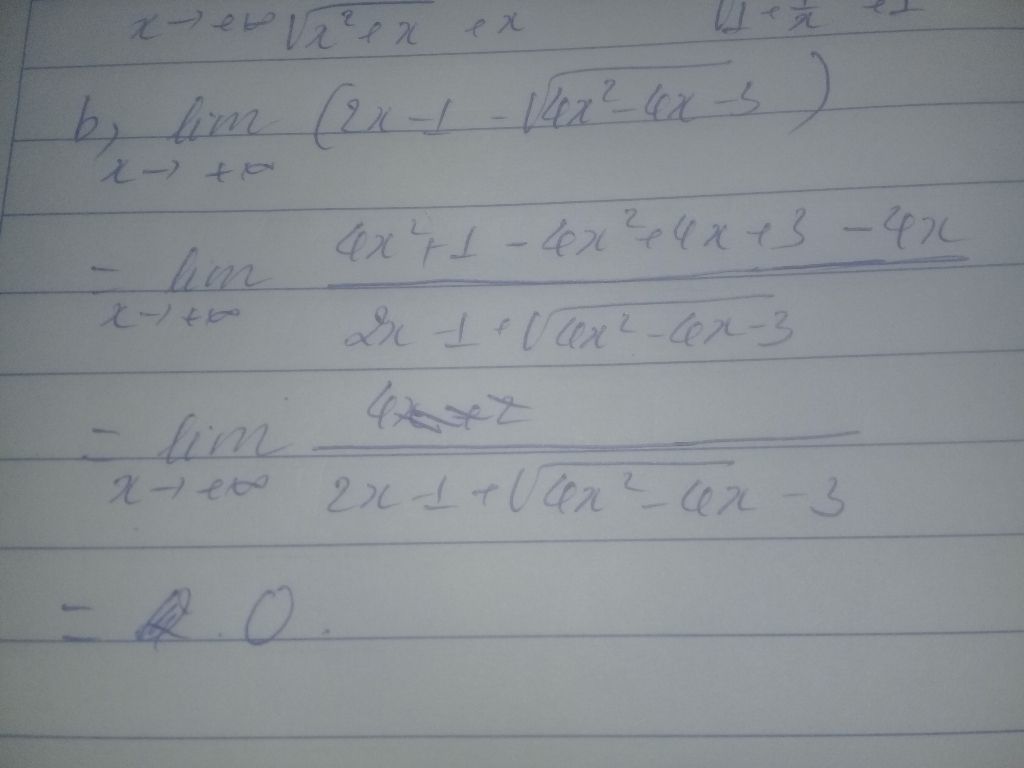 x→+∞ √x²+x +x √1+1/x +1
b, lim (2x-1-√4x²-4x-3)
x→+∞
= lim 4x²+1-4x²+4x+3-4x
x→+∞ 2x-1+√4x²-4x-3
= lim 4
x→+∞ 2x-1+√4x²-4x-3
= 0.